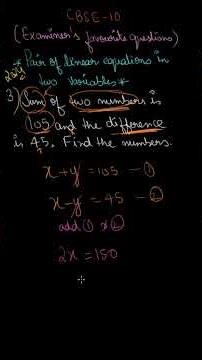 CBSE-10
(Examiner's favourite questions)
* Pair of linear equations in
two variables *
3) Sum of two numbers is
105 and the difference
is 45. Find the numbers.
x+y = 105 - ①
x-y = 45 - ②
add ① & ②
2x = 150